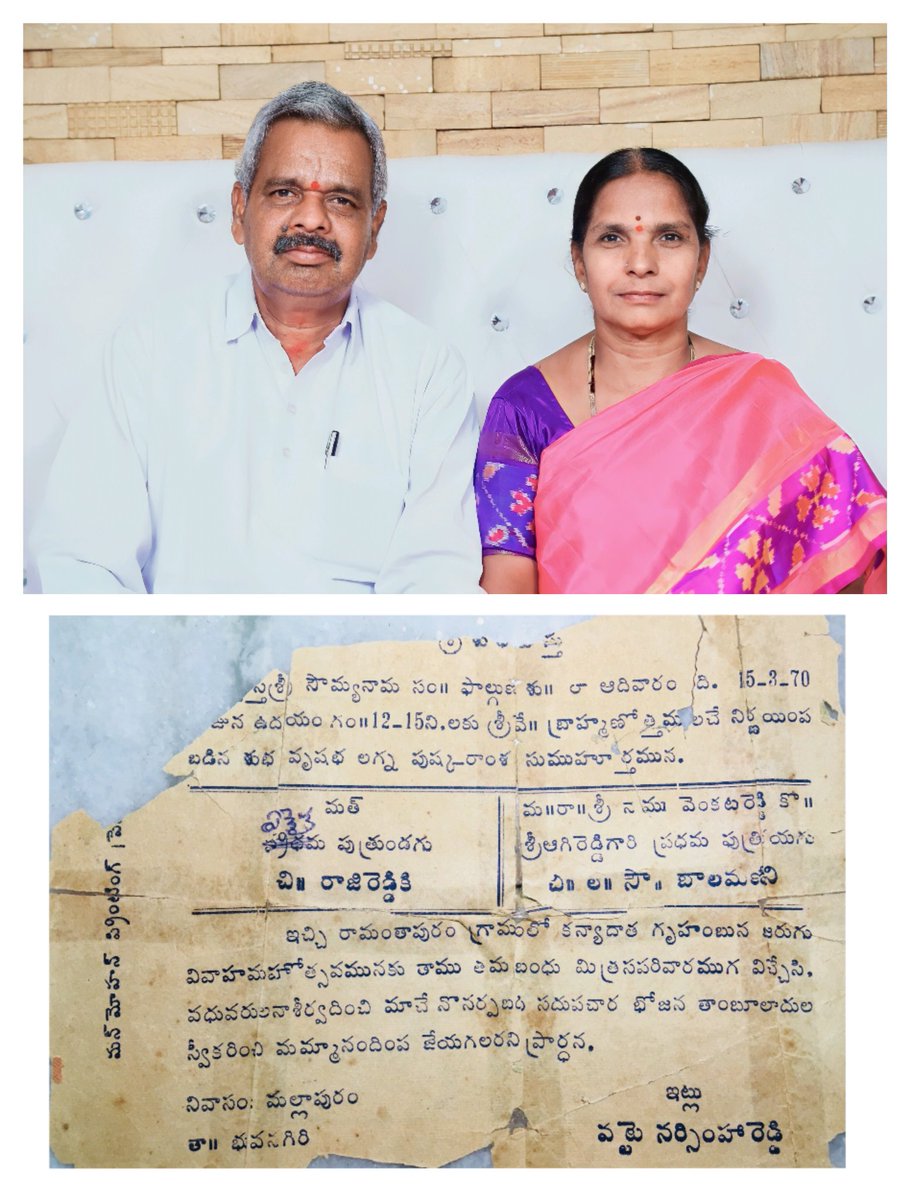 స్తిశ్రీ సౌమ్యనామ సం॥ ఫాల్గుణ శు॥ ఆదివారం ది. 15-3-70
ఉదయం గం॥12-15ని.లకు శ్రీవే॥ బ్రాహ్మణోత్తములచే నిర్ణయింప
బడిన శుభ వృషభ లగ్న పుష్కరాంశ సుముహూర్తమున.
మత్
పుత్రుండగు
చి॥ రాజిరెడ్డికి
మ॥రా॥శ్రీ వెంకటరెడ్డి కో॥
శ్రీఆగిరెడ్డిగారి ప్రథమ పుత్రియగు
చి॥ ల॥ సౌ॥ బాలమణిని
ఇచ్చి రామంతాపురం గ్రామంలో కన్యాదాత గృహంబున జరుగు
వివాహమహోత్సవమునకు తాము తమబంధు మిత్రసపరివారముగ విచ్చేసి.
వధువరులనాశీర్వదించి మాచే నొసర్పబడు సదుపచార భోజన తాంబూలాదుల
స్వీకరించి మమ్మానందింప జేయగలరని ప్రార్ధన.
నివాసం: మల్లాపురం
తా॥ భువనగిరి
ఇట్లు
వట్టె నర్సింహారెడ్డి
మన్ మోహన్ ప్రింటింగ్